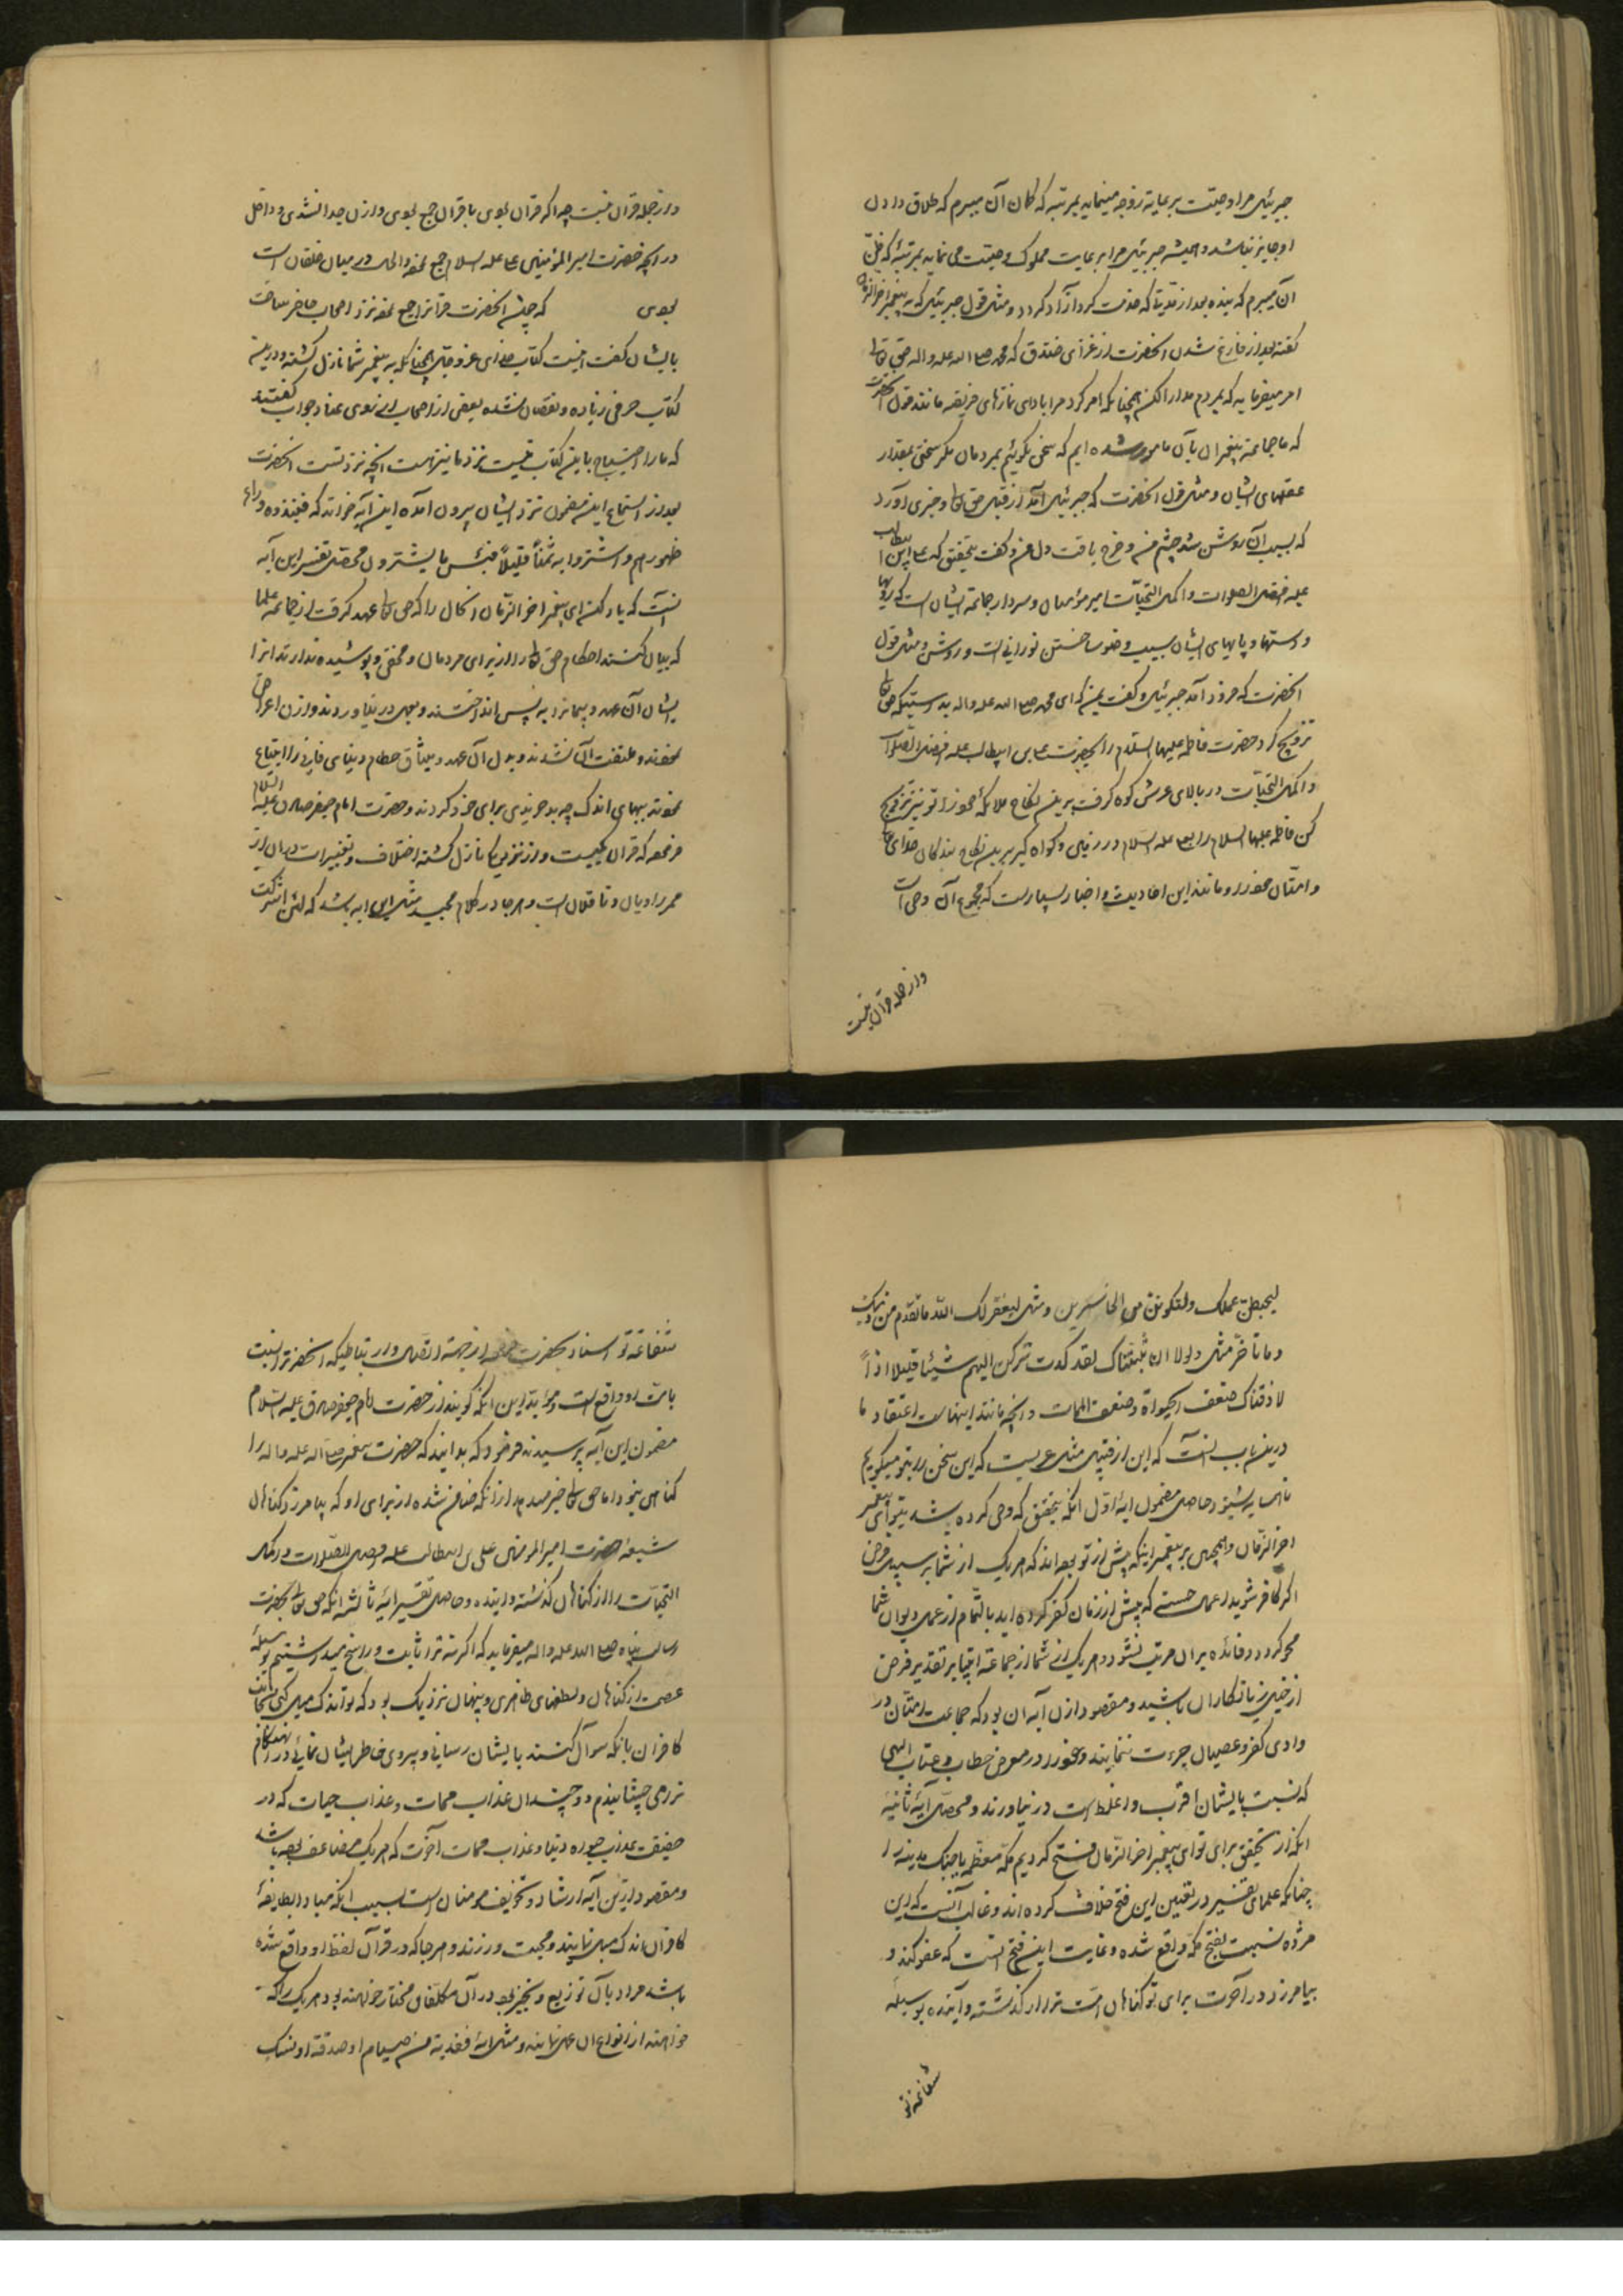 جبرئیل مرا وصیت برعایة زوجه مینماید بمرتبه که کمان آن میبرم که طلاق دادن
او جایز نباشد و همیشه جبرئیل مرا برعایت مملوک وصیت می نماید بمرتبه که ظن
آن میبرم که بنده بعد از مدتیکه خدمت کرد آزاد کردد و مثل قول جبرئیل که به پیغمبر اخر الزمان
کفته بعد از فارغ شدن انحضرت از غزای خندق که محمد صلی الله علیه واله حق تعالی
امر میفرماید که بمردم مدارا کن همچنانکه امر کرد مرا بادای نمازهای فریضه مانند قول انحضرت
که ما جماعة پیغمبران بآن مامور شده ایم که سخن نکوئیم بمردمان مکر سخنی بمقدار
عقلهای ایشان و مثل قول انحضرت که جبرئیل آمد از قبل حق تعالی و خبری آورد
که بسبب آن روشن شد چشم من و فرح یافت دل من و کفت بتحقیق که علی ابن ابیطالب
علیه افضل الصلوات و اکمل التحیات امیر مؤمنان و سردار جماعة ایشان است که رویها
و دستها و پایهای ایشان بسبب وضو ساختن نورانی است و روشن و مثل قول
انحضرت که فرود آمد جبرئیل و کفت بمن که ای محمد صلی الله علیه واله بدرستیکه حق تعالی
تزویج کرد حضرت فاطمه علیها السلام را بحضرت علی بن ابیطالب علیه افضل الصلوات
و اکمل التحیات در بالای عرش کواه کرفت برین نکاح ملائکه خود را تو نیز تزویج
کن فاطمه علیها السلام را بعلی علیه السلام در زمین و کواه کیر برین نکاح بندکان خدای تعالی
و امثال خود را و مانند این احادیث و اخبار بسیارست که مجموع آن وحی است
و از جمله قرآن نیست
و از جمله قرآن نیست چه اکر قرآن بودی با قرآن جمع بودی و از آن جدا نشدی و داخل
در انچه حضرت امیر المؤمنین علی علیه السلام جمع نموده و الحال در میان خلقان است
بودی که چون انحضرت قرآن را جمع نموده نزد اصحاب حاضر ساخت
بایشان کفت اینست کتاب خدای عز و جل همچنانکه به پیغمبر شما نازل کشته و درین
کتاب حرفی زیاده و نقصان نشده بعضی از اصحاب از روی عناد جواب کفتند
که ما را احتیاج باین کتاب نیست نزد ما نیز هست انچه نزد تست انحضرت
بعد از استماع این مضمون نزد ایشان بیرون آمده این آیه خواند که فنبذوه وراء
ظهورهم واشتروا به ثمناً قلیلاً فبئس ما یشترون محصل تفسیر این آیه
انست که یاد کن ای پیغمبر اخر الزمان انحال را که حق تعالی عهد کرفت از جماعة علما
که بیان کنند احکام حق تعالی را از برای مردمان و مخفی و پوشیده ندارند انرا
ایشان آن عهد و پیمانرا به پس انداختند و بعمل در نیاوردند و از آن اعراض
نمودند و ملتفت آن نشدند و بدل آن عهد و میثاق حطام دنیای فانی را ابتیاع
نمودند بهای اندک چه بد خریدی برای خود کردند و حضرت امام جعفر صادق علیه السلام
فرموده که قرآن یکیست و از نزد یکتا نازل کشته اختلاف و تغییرات در آن از
ممر راویان و ناقلان است و هر جا در کلام مجید مثل این آیه باشد که لئن اشرکت
لیحبطن عملک ولتکونن من الخاسرین و مثل لیغفر لک الله ما تقدم من ذنبک
وما تأخر مثل ولولا ان ثبتناک لقد کدت ترکن الیهم شیئا قلیلا اذاً
لاذقناک ضعف الحیوة وضعف الممات و انچه مانند اینهاست اعتقاد ما
درین باب انست که این از قبیل مثل عربیست که این سخن را بتو میکویم
تا همسایه بشنود حاصل مضمون آیهٔ اول انکه بتحقیق که وحی کرده شد بتو ای پیغمبر
اخر الزمان و همچنین بر پیغمبرانیکه پیش از تو بوده اند که هر یک از شما بر سبیل فرض
اکر کافر شوید اعمال حسنه که پیش از زمان کفر کرده اید بالتمام از عمل دیوان شما
محو کردد و فائده بر آن مرتب نشود و هر یک از شما از جماعة انبیا بر تقدیر فرض
از خیل زیانکاران باشید و مقصود از آن آیه آن بود که جماعت امتان در
وادی کفر و عصیان جرءت ننمایند و خود را در معرض خطاب و عتاب الهی
که نسبت بایشان اقرب و اغلظ است در نیاورند و محصل آیهٔ ثانیه
انکه از تحقیق برای تو ای پیغمبر اخر الزمان فتح کردیم مکه معظمه یا جنک مدینه را
چنانکه علمای تفسیر در تعیین این فتح خلاف کرده اند و غالب آنست که این
مژده نسبت بفتح مکه واقع شده و غایت این فتح انست که عفو کند و
بیامرزد در آخرت برای تو کناهان امت ترا از کذشته و آینده بوسیلهٔ
شفاعة تو
شفاعة تو اسناد بحضرت از جهة اتصال و ارتباطیکه انحضرترا نسبت
بامت او واقع است و مؤید این انکه کویند از حضرت امام جعفر صادق علیه السلام
مضمون این آیه پرسیدند فرمود که بدانید که حضرت پیغمبر صلی الله علیه واله را
کناهی نبود اما حق تعالی خبر میدهد از انکه ضامن شده از برای او که بیامرزد کناهان
شیعهٔ حضرت امیر المومنین علی بن ابیطالب علیه افضل الصلوات و اکمل
التحیات را از کناهان کذشته و اینده و حاصل تفسیر آیهٔ ثالثه انکه حق تعالی بحضرت
رسالت پناه صلی الله علیه واله میفرماید که اکر نه ترا ثابت و راسخ میداشتیم بوسیلهٔ
عصمت از کناهان و لطفهای ظاهری و پنهان نزدیک بود که تو اندک میل کنی بجانب
کافران بانکه سوآل کنند بایشان رسانی و پیروی خاطر ایشان نمائی در انهنکام
ترا می چشانیدم دو چندان عذاب ممات و عذاب حیات که در
حقیقت عذاب حیوة دنیا و عذاب ممات آخرت که هر یک مضاعف بوده باشد
و مقصود ازین آیه ارشاد و تخویف مومنان است بسبب انکه مبادا بطایفهٔ
کافران اندک میل نمایند و محبت ورزند و هر جا که در قرآن لفظ او واقع شده
باشد مراد بآن توزیع و تخییر بود در آن مکلفان مختار خواهند بود هر یک را که
خواهند از انواع آن عمل نمایند و مثل آیهٔ ففدیة من صیام او صدقة او نسک